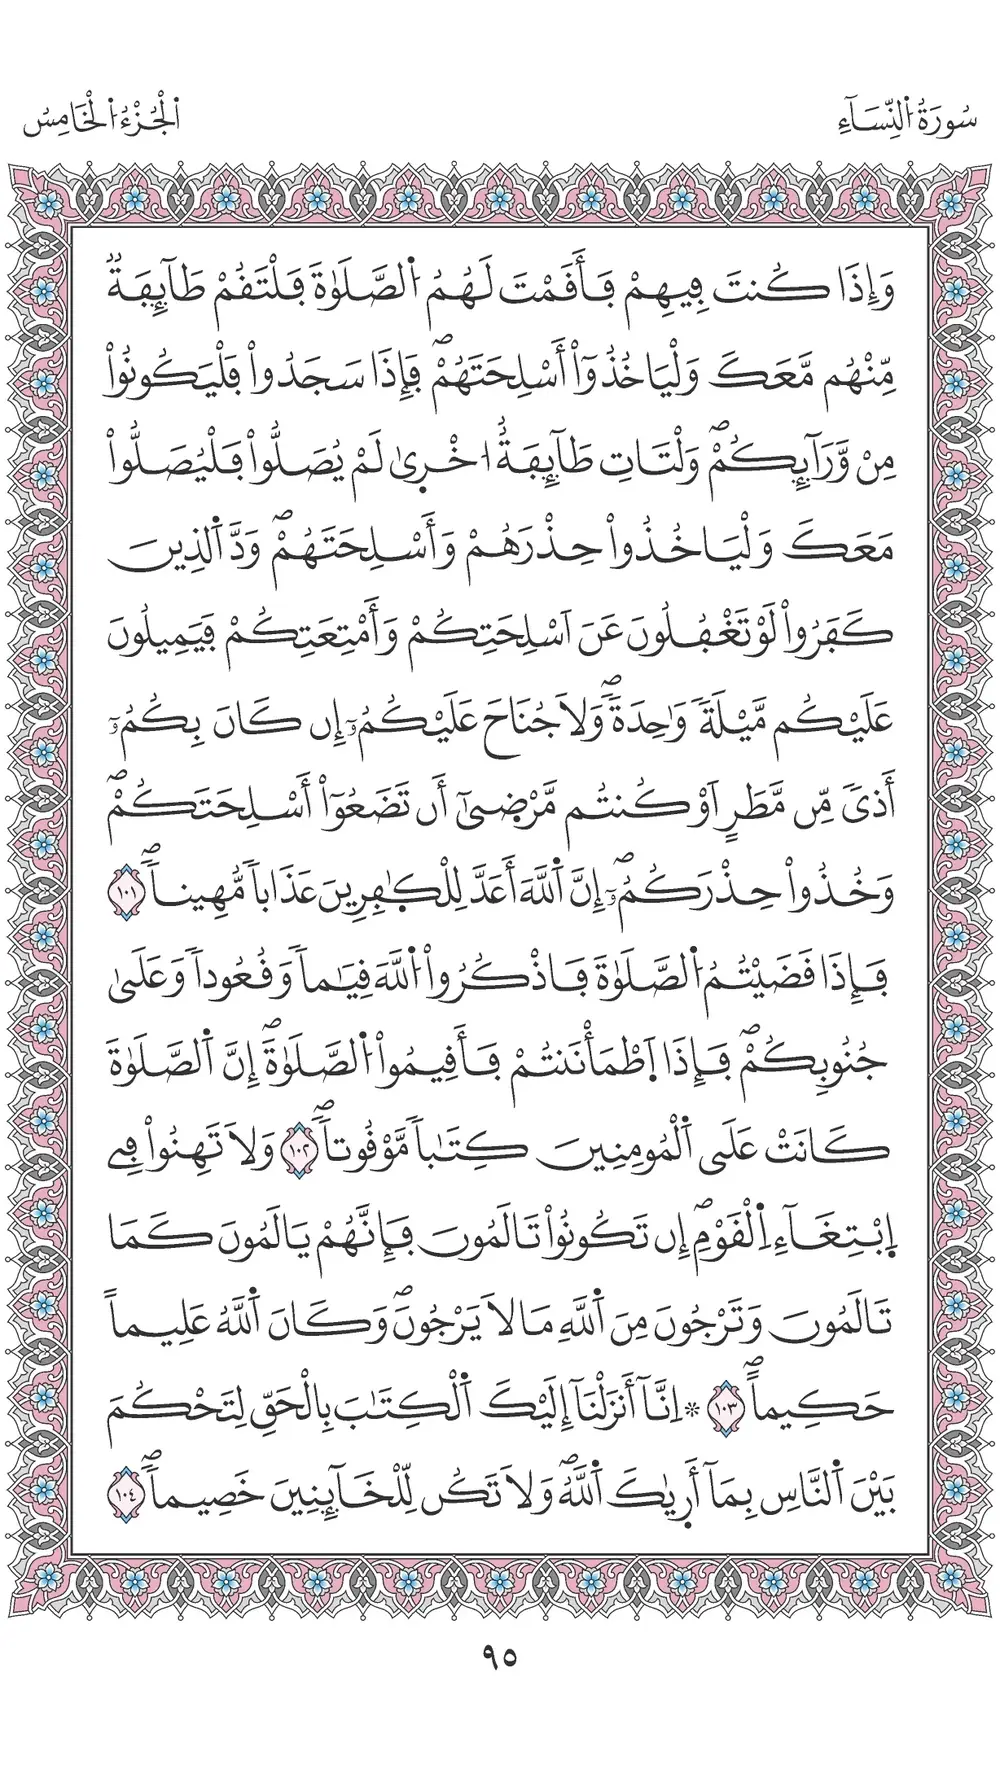 سُورَةُ اُ۬لنِّسَآءِ
اَ۬لْجُزْءُ اُ۬لْخَامِسُ
وَإِذَا كُنتَ فِيهِمْ فَأَقَمْتَ لَهُمُ اُ۬لصَّلَوٰةَ فَلْتَقُمْ طَآئِفَةٞ
مِّنْهُم مَّعَكَ وَلْيَاخُذُوٓاْ أَسْلِحَتَهُمْۖ فَإِذَا سَجَدُواْ فَلْيَكُونُواْ
مِنْ وَّرَآئِكُمْۖ وَلْتَاتِ طَآئِفَةٌ ا۟خْر۪يٰ لَمْ يُصَلُّواْ فَلْيُصَلُّواْ
مَعَكَ وَلْيَاخُذُواْ حِذْرَهُمْ وَأَسْلِحَتَهُمْۖ وَدَّ اَ۬لذِينَ
كَفَرُواْ لَوْ تَغْفُلُونَ عَنَ اَسْلِحَتِكُمْ وَأَمْتِعَتِكُمْ فَيَمِيلُونَ
عَلَيْكُم مَّيْلَةٗ وَٰحِدَةٗۖ وَلَا جُنَاحَ عَلَيْكُمُۥٓ إِن كَانَ بِكُمُۥٓ
أَذيٗ مِّن مَّطَرٍ اَوْ كُنتُم مَّرْض۪يٓ أَن تَضَعُوٓاْ أَسْلِحَتَكُمْۖ
وَخُذُواْ حِذْرَكُمُۥٓۖ إِنَّ اَ۬للَّهَ أَعَدَّ لِلْكٰ۪فِرِينَ عَذَاباٗ مُّهِيناٗۖ ١٠١
فَإِذَا قَضَيْتُمُ اُ۬لصَّلَوٰةَ فَاذْكُرُواْ اُ۬للَّهَ قِيَٰماٗ وَقُعُوداٗ وَعَلَيٰ
جُنُوبِكُمْۖ فَإِذَا اَ۪طْمَأْنَنتُمْ فَأَقِيمُواْ اُ۬لصَّلَوٰةَۖ إِنَّ اَ۬لصَّلَوٰةَ
كَانَتْ عَلَي اَ۬لْمُومِنِينَ كِتَٰباٗ مَّوْقُوتاٗۖ ١٠٢ وَلَا تَهِنُواْ فِے
اِ۪بْتِغَآءِ اِ۬لْقَوْمِۖ إِن تَكُونُواْ تَالَمُونَ فَإِنَّهُمْ يَالَمُونَ كَمَا
تَالَمُونَ وَتَرْجُونَ مِنَ اَ۬للَّهِ مَا لَا يَرْجُونَۖ وَكَانَ اَ۬للَّهُ عَلِيماً
حَكِيماًۖ ١٠٣ ۞ اِنَّآ أَنزَلْنَآ إِلَيْكَ اَ۬لْكِتَٰبَ بِالْحَقِّ لِتَحْكُمَ
بَيْنَ اَ۬لنَّاسِ بِمَآ أَر۪يٰكَ اَ۬للَّهُۖ وَلَا تَكُن لِّلْخَآئِنِينَ خَصِيماٗۖ ١٠٤
٩٥